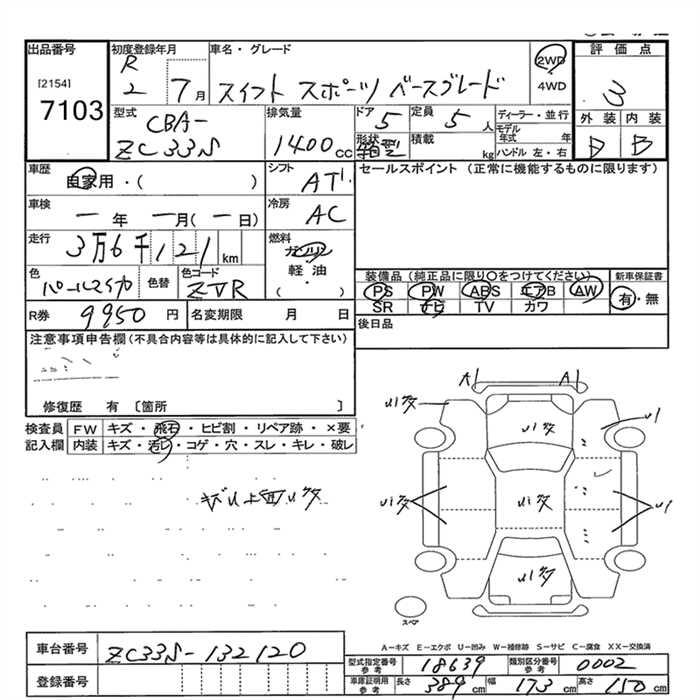 出品番号
[2154]
7103
初度登録年月
R 2 7月
車名・グレード
スイフト スポーツ ベースグレード
2WD・4WD
評価点
3
外装 内装
B B
型式
CBA-
ZC33S
排気量
1400cc
ドア
5
形状
箱型
定員
5人
積載
kg
ディーラー・並行
モデル年式 年
ハンドル 左・右
車歴
自家用・( )
シフト
AT
セールスポイント (正常に機能するものに限ります)
車検
ー年ー月(ー日)
冷房
AC
走行
3万6千121km
燃料
ガソリン
軽油
( )
色
パールマイカ
色替
色コード
ZVR
装備品 (純正品に限り○をつけてください)
PS PW ABS エアB AW
SR ナビ TV カワ
新車保証書
有・無
R券 9950円
名変期限 月 日
後日品
注意事項申告欄 (不具合内容等は具体的に記入して下さい)
修復歴 有 〔箇所 〕
検査員記入欄
FW キズ・飛石・ヒビ割・リペア跡・×要
内装 キズ・汚レ・コゲ・穴・スレ・キレ・破レ
A1 A1
スペア
A-キズ E-エクボ U-凹み W-補修跡 S-サビ C-腐食 XX-交換済
車台番号 ZC33S-132120
登録番号
型式指定番号 参考 18639 類別区分番号 参考 0002
車庫証明用 参考 長さ 389cm 幅 173cm 高さ 150cm